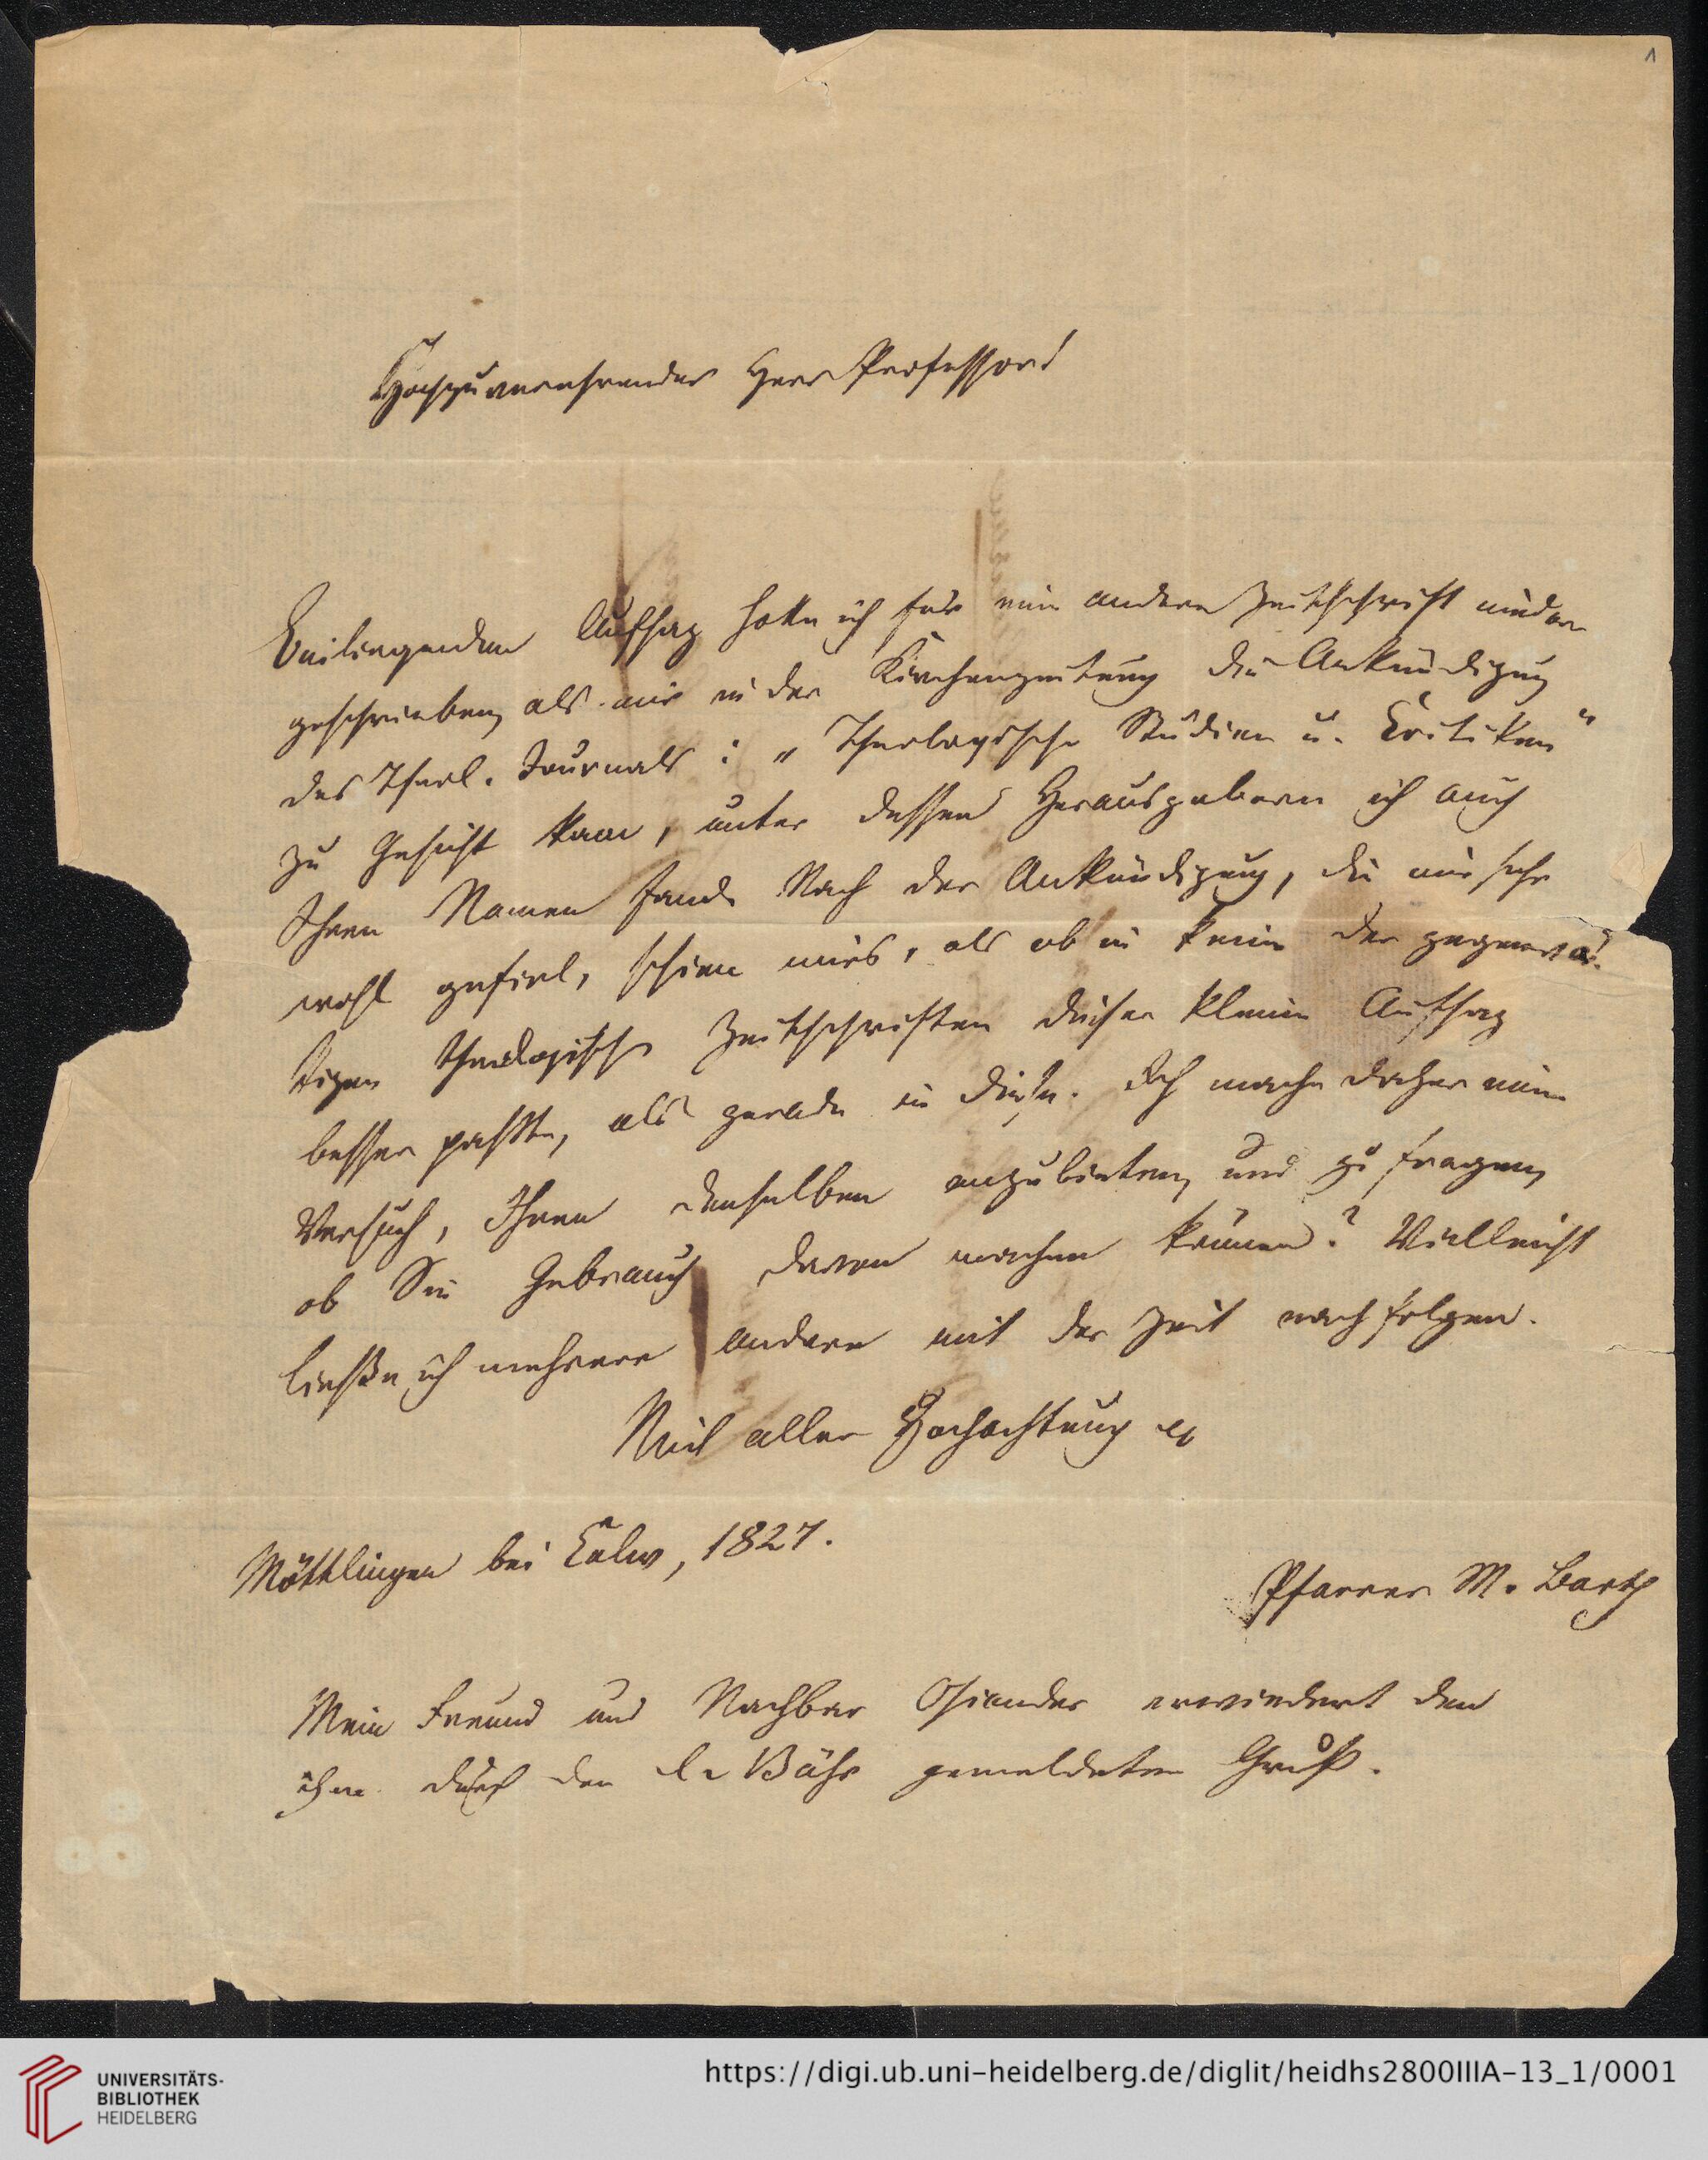 1
Hochzuverehrender Herr Professor!
Beiliegenden Aufsaz hatte ich für eine andere Zeitschrift nieder
geschrieben, als mir in der Kirchenzeitung die Ankündigung
des Theol. Journals: „Theologische Studien u. Critiken"
zu Gesicht kam, unter dessen Herausgebern ich auch
Ihren Namen fand. Nach der Ankündigung, die mir sehr
wohl gefiel, schien mirs, als ob in keine der gegenwär-
tigen theologischen Zeitschriften dieser kleine Aufsaz
besser paßte, als gerade in diese. Ich mache daher einen
Versuch, Ihnen denselben anzubieten, und zu fragen,
ob Sie Gebrauch davon machen können? Vielleicht
ließe ich mehrere andere mit der Zeit nachfolgen.
Mit aller Hochachtung
Möttlingen bei Calw, 1827.
Pfarrer M. Barth
Mein Freund und Nachbar Osiander erwiedert den
ihm durch den Bähr gemeldeten Gruß.
UNIVERSITÄTS-
BIBLIOTHEK
HEIDELBERG
https://digi.ub.uni-heidelberg.de/diglit/heidhs2800IIIA-13_1/0001